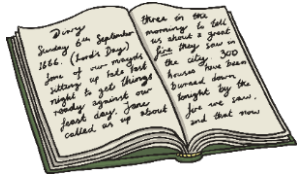 Diary
Sunday 6th September
1666. (Lord's Day)
Some of our maids
sitting up late last
night to get things
ready against our
feast day. Jane
called us up about
three in the
morning to tell
us about a great
fire they saw in
the city. 300
houses have been
burned down
tonight by the
fire we saw.
and that now